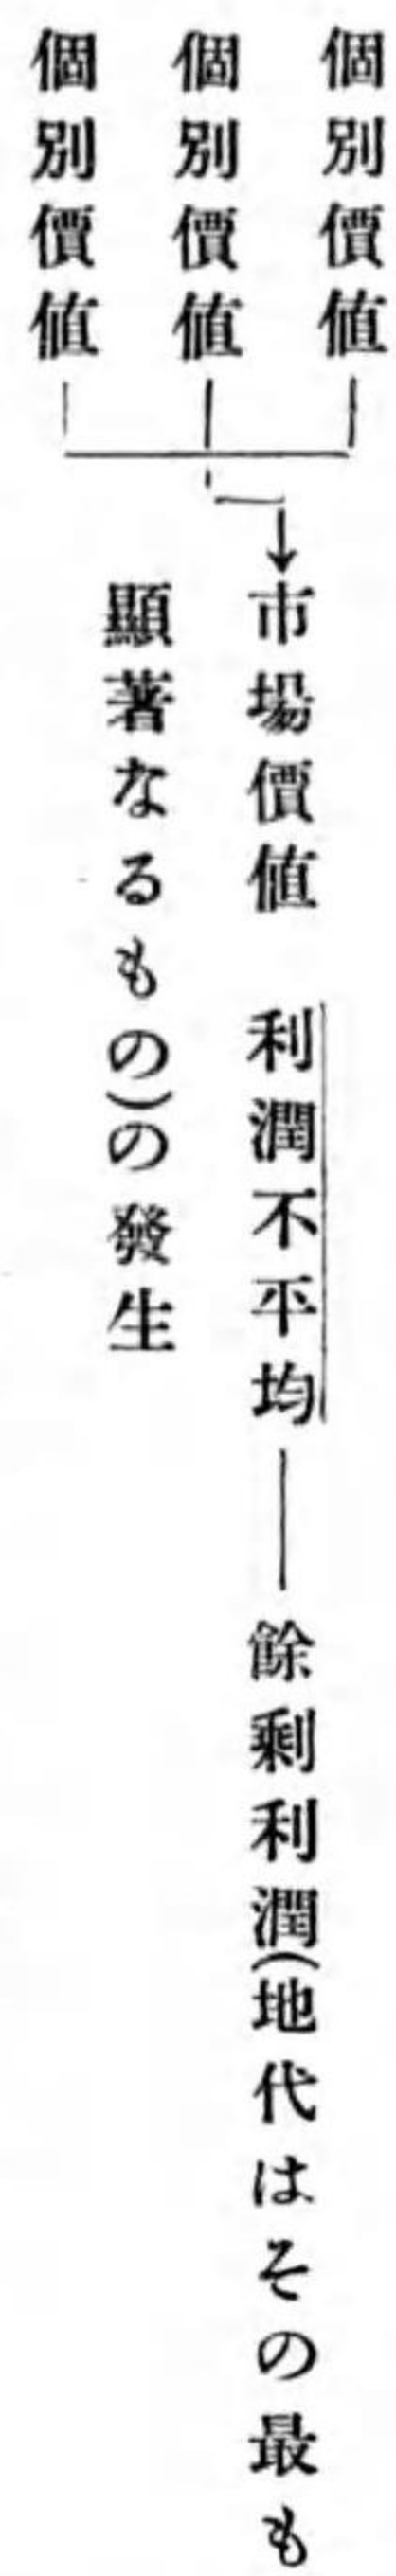 個別價値
個別價値
個別價値
市場價値　利潤不平均——餘剩利潤(地代はその最も
顯著なるもの)の發生